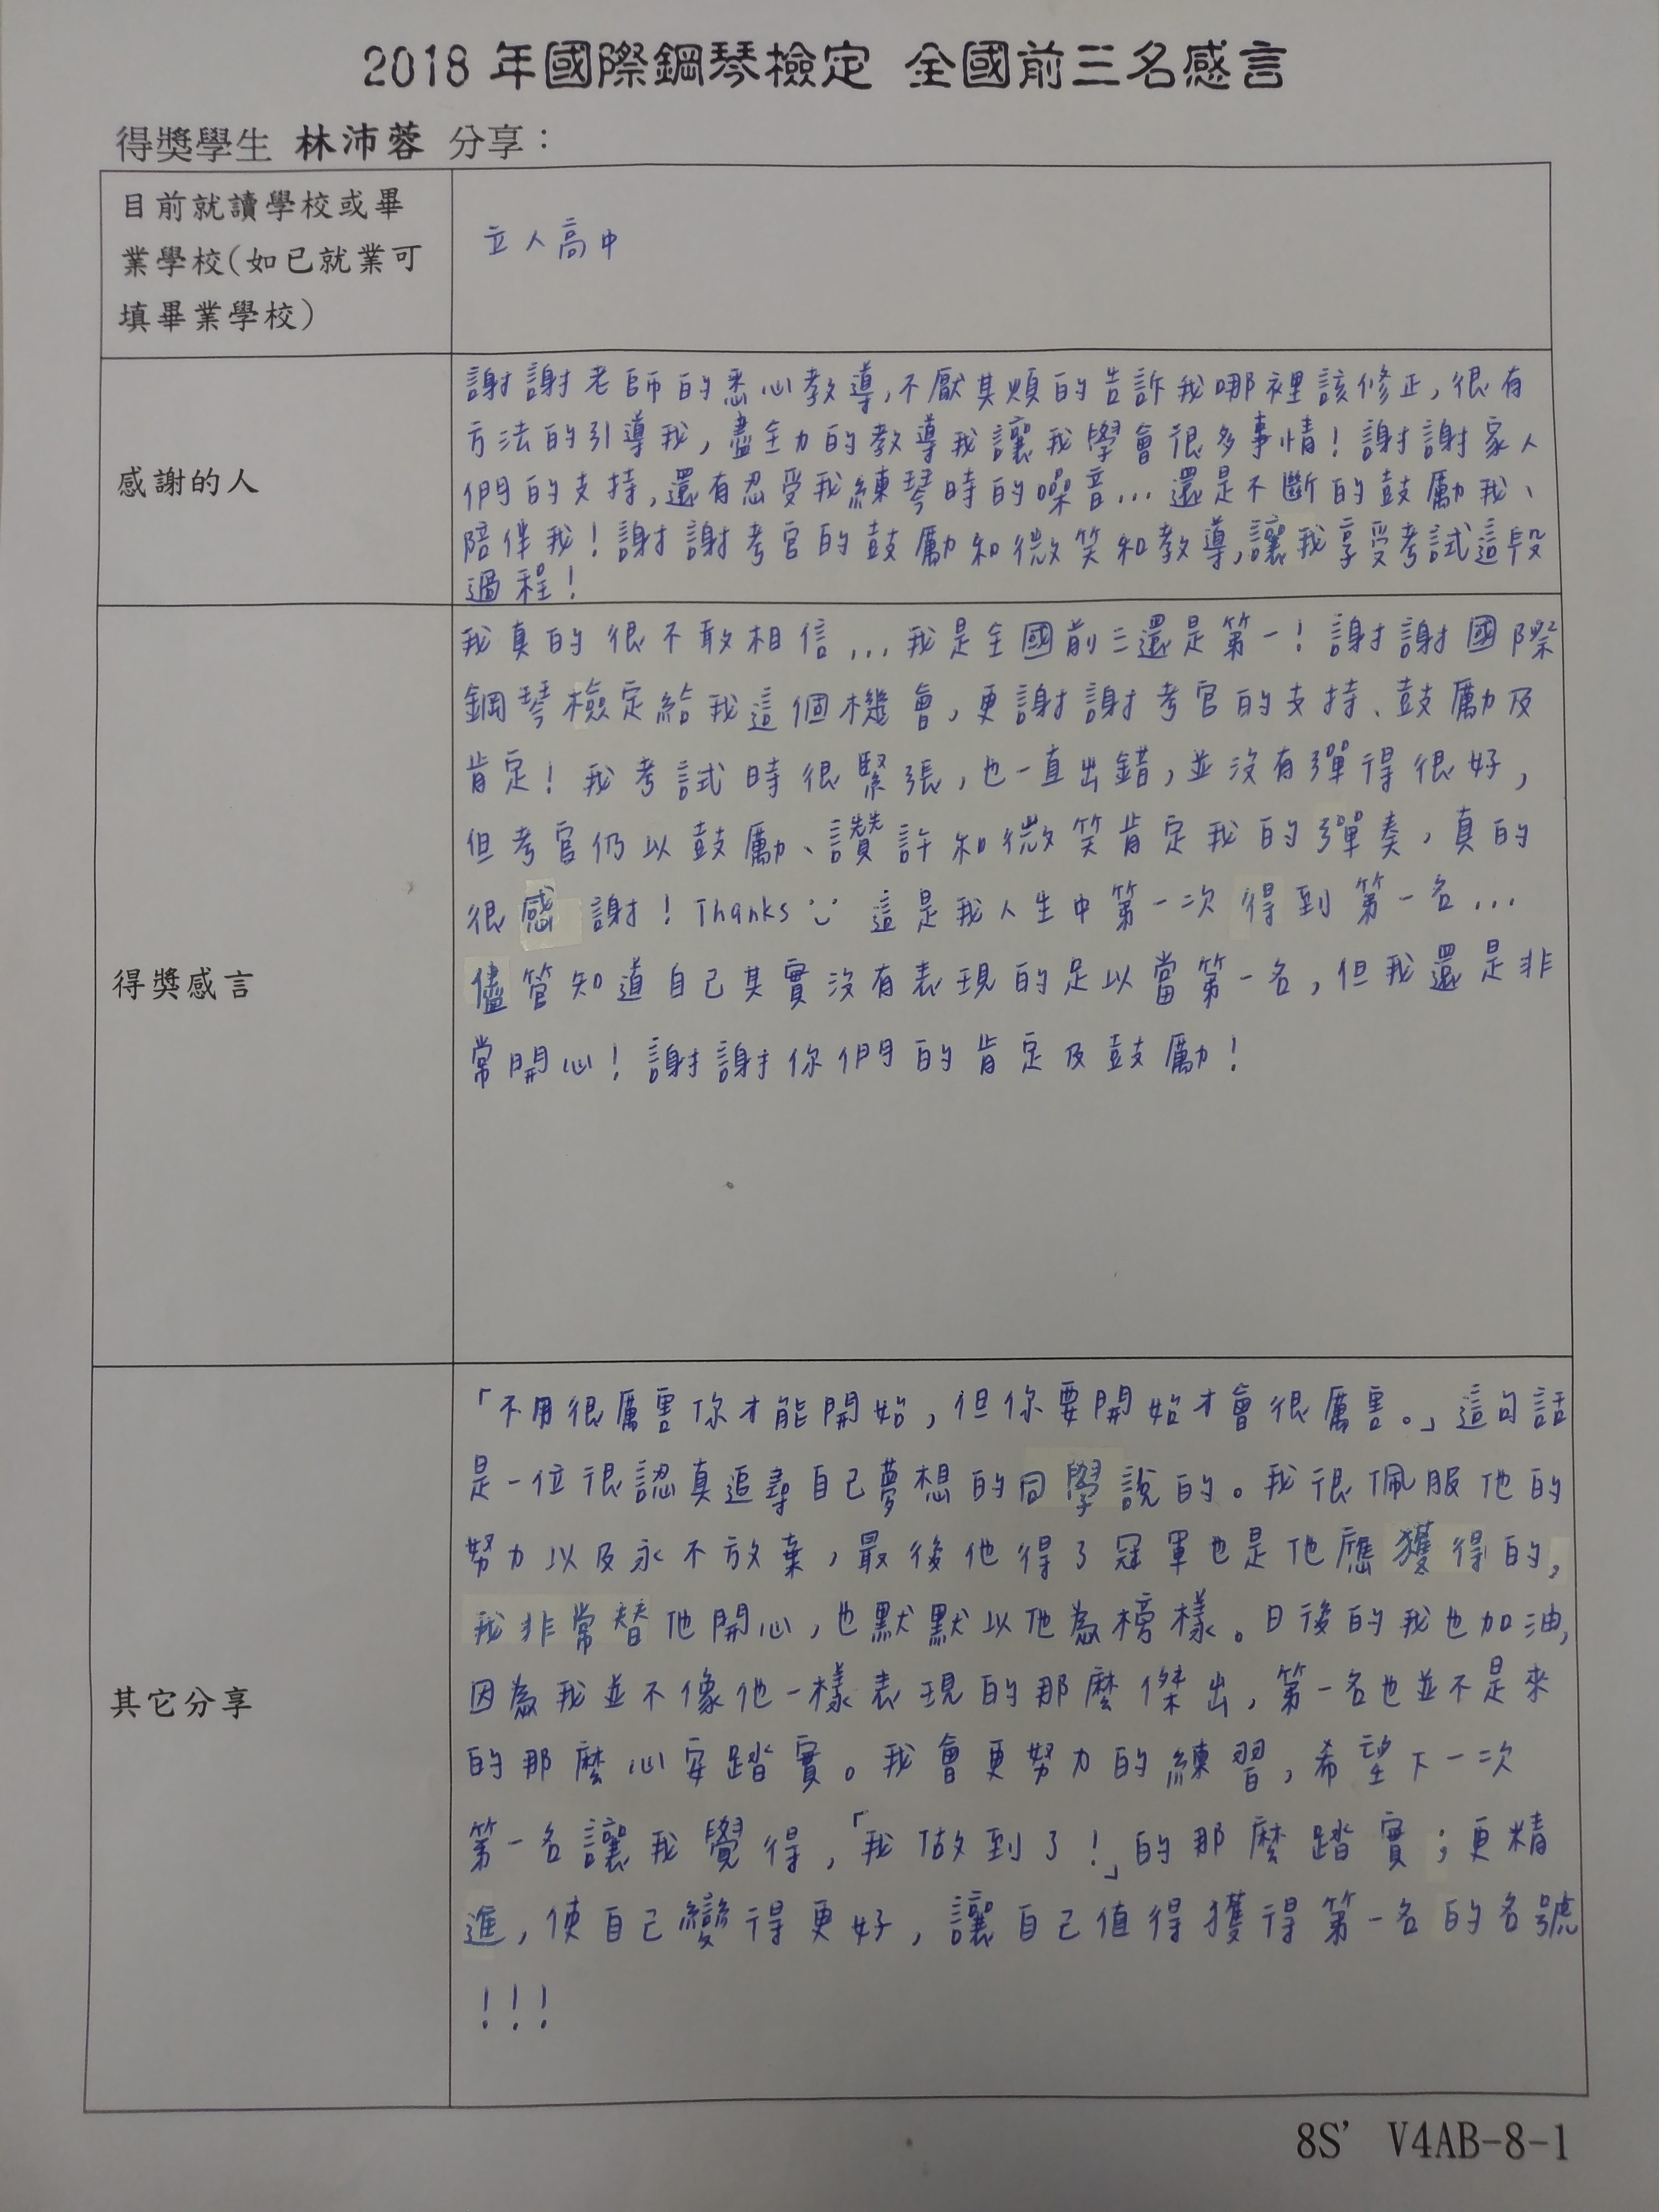 2018 年國際鋼琴檢定 全國前三名感言
得獎學生 林沛蓉 分享：
目前就讀學校或畢
業學校(如已就業可
填畢業學校)
立人高中
感謝的人
謝謝老師的悉心教導,不厭其煩的告訴我哪裡該修正,很有
方法的引導我,盡全力的教導我讓我學會很多事情!謝謝家人
們的支持,還有忍受我練琴時的噪音...還是不斷的鼓勵我、
陪伴我!謝謝考官的鼓勵和微笑和教導,讓我享受考試這段
過程!
得獎感言
我真的很不敢相信...我是全國前三還是第一!謝謝國際
鋼琴檢定給我這個機會,更謝謝考官的支持、鼓勵及
肯定!我考試時很緊張,也一直出錯,並沒有彈得很好,
但考官仍以鼓勵、讚許和微笑肯定我的彈奏,真的
很感謝!Thanks 這是我人生中第一次得到第一名...
儘管知道自己其實沒有表現的足以當第一名,但我還是非
常開心!謝謝你們的肯定及鼓勵!
其它分享
「不用很厲害你才能開始,但你要開始才會很厲害。」這句話
是一位很認真追尋自己夢想的同學說的。我很佩服他的
努力以及永不放棄,最後他得了冠軍也是他應獲得的,
我非常替他開心,也默默以他為榜樣。日後的我也加油,
因為我並不像他一樣表現的那麼傑出,第一名也並不是來
的那麼心安踏實。我會更努力的練習,希望下一次
第一名讓我覺得,「我做到了!」的那麼踏實;更精
進,使自己變得更好,讓自己值得獲得第一名的名號
!!!
8S’ V4AB-8-1